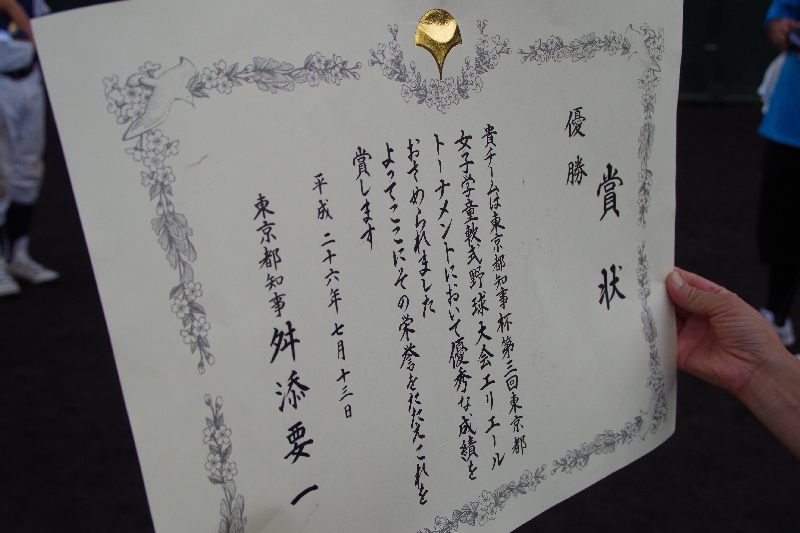 賞状
優勝
貴チームは東京都知事杯第三回東京都
女子学童軟式野球大会エリエール
トーナメントにおいて優秀な成績を
おさめられました
よってここにその栄誉をたたえこれを
賞します
平成二十六年七月十三日
東京都知事 舛添要一